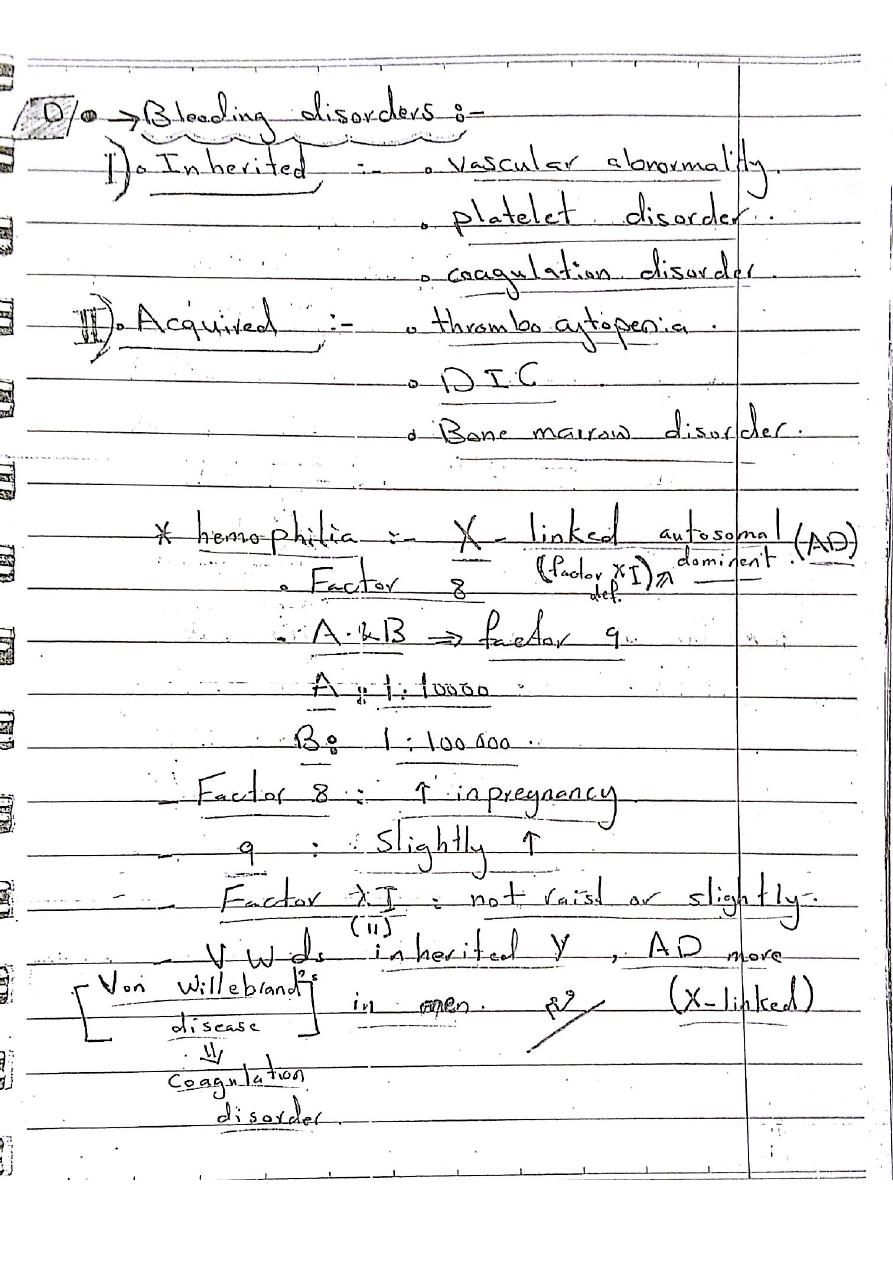 D • → Bleeding disorders :-
I) • Inherited :- • Vascular abnormality.
• platelet disorder.
• coagulation disorder.
II) • Acquired :- • thrombocytopenia.
• DIC
• Bone marrow disorder.
* hemophilia :- X - linked autosomal (AD)
dominent.
(factor XI) ↗
def.
• Factor 8
• A & B ⇒ factor 9.
A : 1:10000
B: 1:100.000.
- Factor 8 : ↑ in pregnancy
- 9 : Slightly ↑
- Factor XI : not raisd or slightly.
(11)
- V W ds inherited y, AD more
[Von Willebrand's
disease] in men. (X-linked)
⇓
coagulation
disorder.